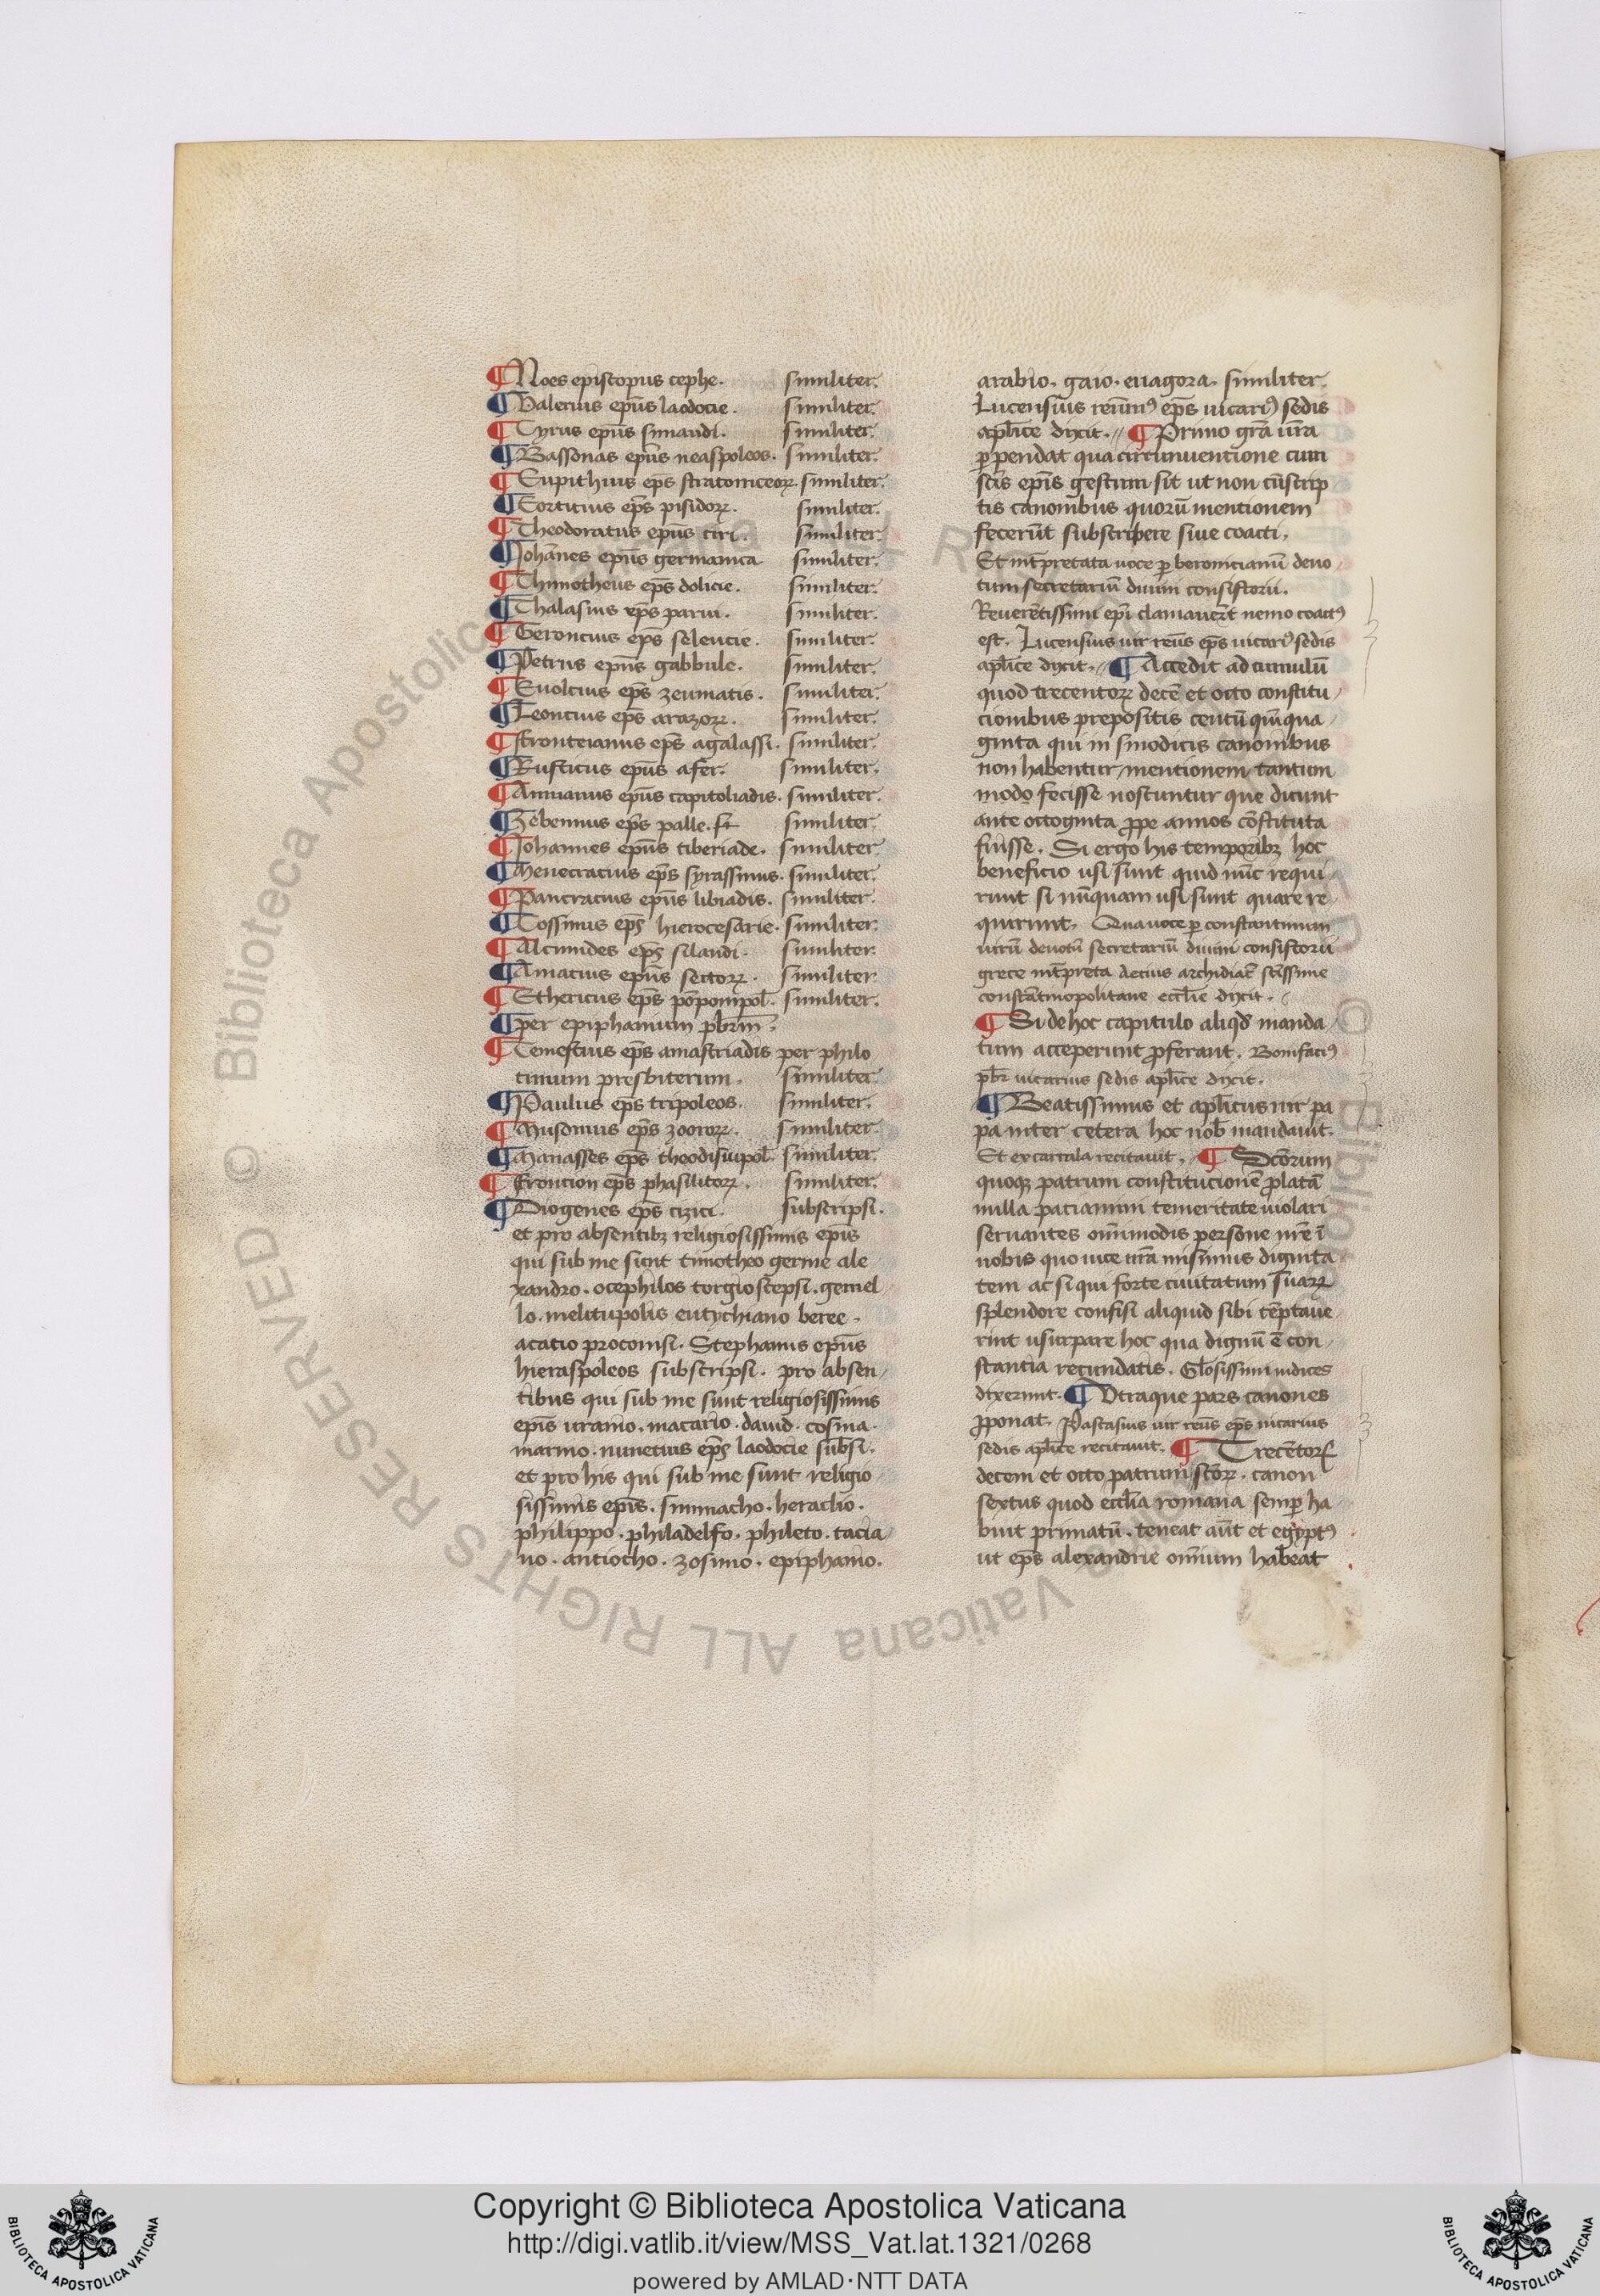 ¶ Noes episcopus cephe. similiter.
¶ Valerius epūs laodocie. similiter.
¶ Tyrus epūs simandi. similiter.
¶ Bassonas epūs neaspoleos. similiter.
¶ Eupithius ep̄s stratoniceoꝝ. similiter.
¶ Eorticius ep̄s pisidoꝝ. similiter.
¶ Theodoratus epūs ciri. similiter.
¶ Johānes epūs germanica similiter.
¶ Thimotheus ep̄s dolicie. similiter.
¶ Thalasius ep̄s parui. similiter.
¶ Geroncius ep̄s seleucie. similiter.
¶ Petrus epūs gabbule. similiter.
¶ Euolcius ep̄s zeumatis. similiter.
¶ Leoncius ep̄s arazoꝝ. similiter.
¶ Fronteianus ep̄s agalassi. similiter.
¶ Rusticus epūs afer. similiter.
¶ Annianus epūs capitoliadis. similiter.
¶ Zebennus ep̄s palle. similiter.
¶ Johannes epūs tiberiade. similiter.
¶ Menecracius ep̄s syrassinus. similiter.
¶ Pancracius epūs libiadis. similiter.
¶ Cossinus ep̄s hierocesarie. similiter.
¶ Alcimides ep̄s silandi. similiter.
¶ Amacius epūs sectoꝝ. similiter.
¶ Ethericus ep̄s pōpompol̄. similiter.
¶ per epiphanium pb̄rm̄.
¶ Temestius ep̄s amastriadis per philo
timum presbiterum. similiter
¶ Paulus ep̄s tripoleos. similiter.
¶ Musonius ep̄s zooroꝝ. similiter
¶ Manasses ep̄s theodisiupol̄ similiter.
¶ Froncion ep̄s phasilitoꝝ. similiter.
¶ Diogenes ep̄s cizici. subscripsi.
et pro absentibꝫ religiosissimis epīs
qui sub me sunt timotheo germe ale
xandro. ocephilos torgio scepsi. gemel
lo. melitupolis eutychiano beree.
acatio proconisi. Stephanus epūs
hieraspoleos subscripsi. pro absen
tibus qui sub me sunt religiosissimis
epīs uranio. macario. dauid. cosma.
marino. nunecius ep̄s laodocie subsi.
et pro his qui sub me sunt religio
sissimis epīs. simmacho. heraclio.
philippo. philadelfo. phileto. tacia
no. antiocho. zosimo. epiphanio.
arabio. gaio. euagora. similiter.
Lucensius reūmꝰ ep̄s uicariꝰ sedis
apl̄ice dixit. ¶ Primo grā ūra
ꝑpendat qua circumuentione cum
scīs epīs gestum sit ut non cūscrip
tis canonibus quorū mentionem
fecerūt subscribere siue coacti.
Et int̄pretata uoce ꝑ beronicianū deuo
tum secretariū diuini consistorii.
Reuerētissimi epī clamauer̄t nemo coactꝰ
est. Lucensius uir reūs ep̄s uicariꝰ sedis
apl̄ice dixit. ¶ Accedit ad cumulū
quod trecentoꝝ decē et octo constitu
cionibus prepositis centū quīqua
ginta qui in sinodicis canonibus
non habentur mentionem tantum
modo fecisse noscuntur que dicunt
ante octoginta ꝓpe annos cōstituta
fuisse. Si ergo his temporibꝫ hoc
beneficio usi sunt quid nūc requi
runt si nūquam usi sunt quare re
quirunt. Qua uoce ꝑ constantinum
uirū deuotū secretariū diuini consistorii
grece int̄preta Aetius archidiac̄ scīssime
constātinopolitane eccl̄ie dixit.
¶ Si de hoc capitulo aliqd̄ manda
tum acceperunt ꝓferant. Bonifaciꝰ
pb̄r uicarius sedis apl̄ice dixit.
¶ Beatissimus et apl̄icus uir pa
pa inter cetera hoc nob̄ mandauit.
Et ex cartala recitauit. ¶ Scōrum
quoqꝫ patrum constitucionē ꝓlatā
nulla patiamini temeritate uiolari
seruantes om̄imodis persone nr̄e ī
uobis quo uice nr̄a misimus dignita
tem ac si qui forte ciuitatum suaꝝ
splendore confisi aliquid sibi tēptaue
rint usurpare hoc qua dignū ē con
stantia recundatis. Gl̄osissimi iudices
dixerunt. ¶ Vtraque pars canones
ꝓponat. Pascasius uir reūs ep̄s uicarius
sedis apl̄ice recitauit. ¶ Trecētoꝝ
decem et octo patrum sc̄oꝝ. canon
sextus quod eccl̄ia romana semꝑ ha
buit primatū. teneat aūt et egyptꝰ
ut ep̄s alexandrie om̄ium habeat
Copyright © Biblioteca Apostolica Vaticana
http://digi.vatlib.it/view/MSS_Vat.lat.1321/0268
powered by AMLAD·NTT DATA